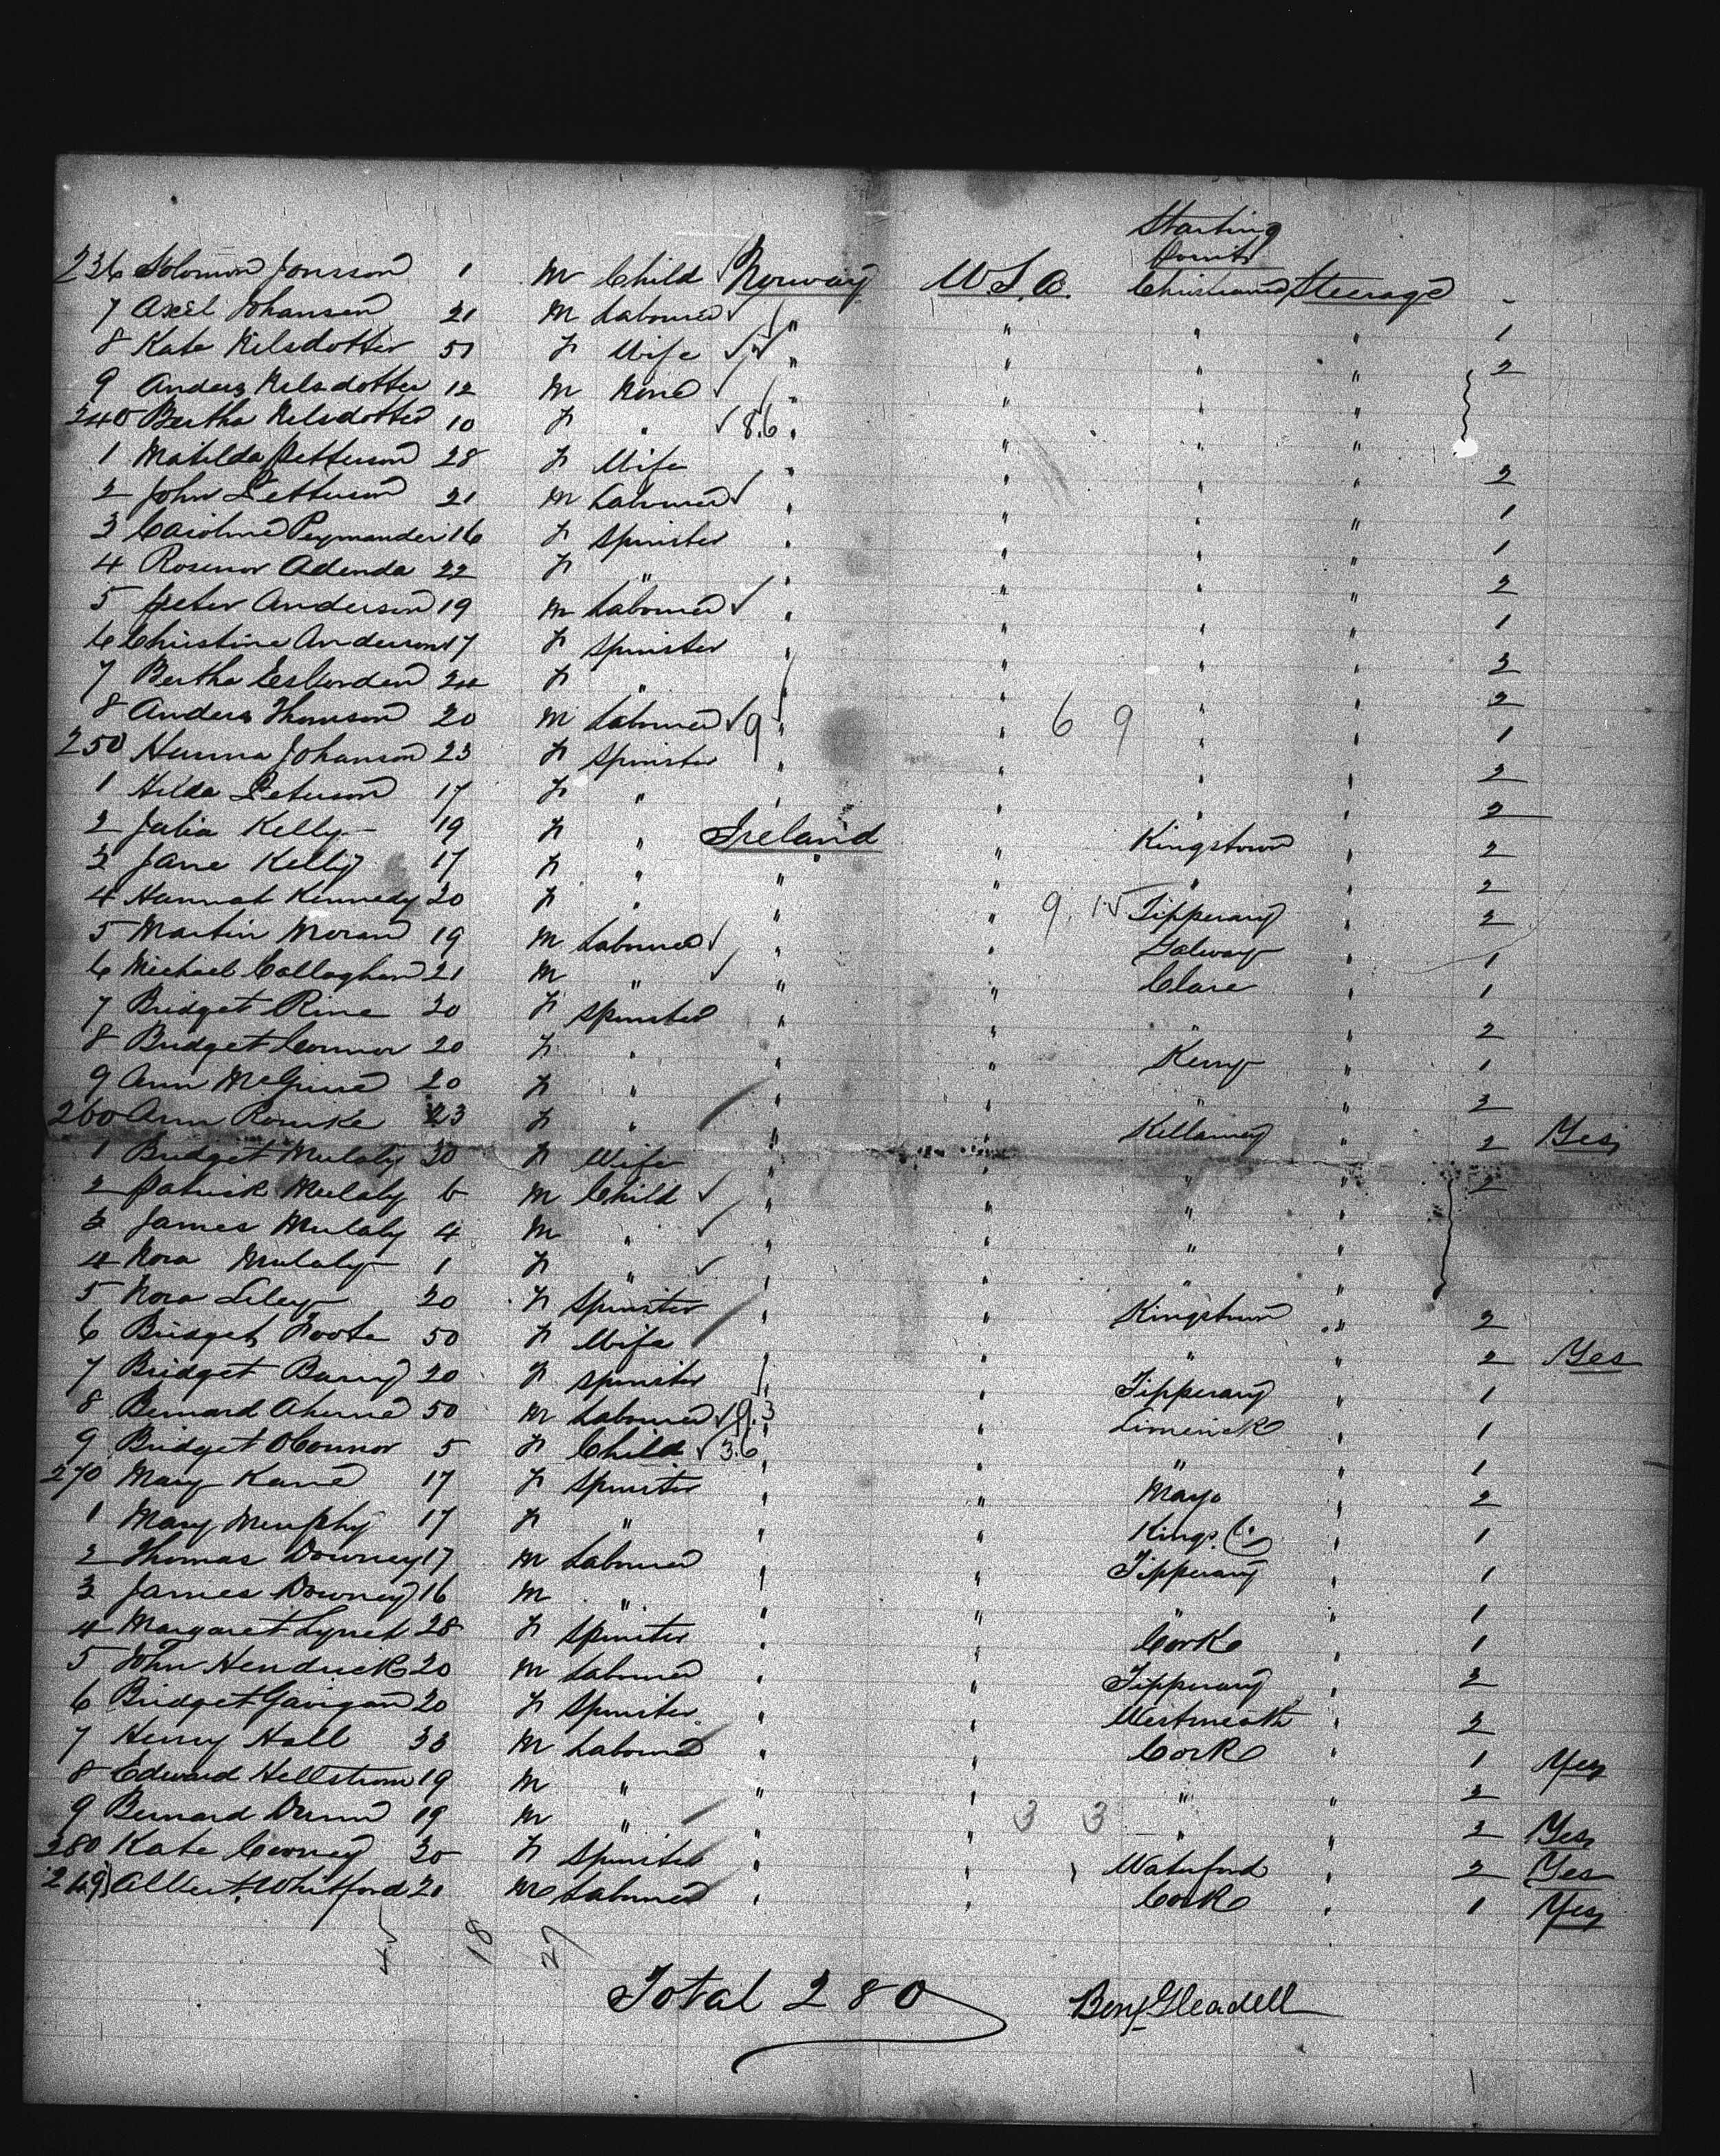 Starting
Point
236 Solomon Jonsson 1 M Child Norway U.S.A. Christiania Steerage -
7 Axel Johansen 21 M Labourer " " " " 1
8 Kate Nelsdotter 51 F Wife " " " " 2
9 Anders Nelsdotter 12 M None " " " "
240 Bertha Nelsdotter 10 F " 8.6 " " " "
1 Matilda Petterson 28 F Wife " " " " 2
2 John Petterson 21 M Labourer " " " " 1
3 Caroline 16 F Spinster " " " " 1
4 Rosenor Adenda 22 F " " " " " 2
5 Peter Anderson 19 M Labourer " " " " 1
6 Christine Anderson 17 F Spinster " " " " 2
7 Bertha 24 F " " " " " 2
8 Anders Thomson 20 M Labourer 9 " " 6 9 " " 1
250 Johanson 23 F Spinster " " " " 2
1 Hilda Peterson 17 F " " " " " 2
2 Julia Kelly 19 F " Ireland " Kingstown " 2
3 Jane Kelly 17 F " " " " " 2
4 Hannah Kennedy 20 F " " " 9. 15 Tipperary " 2
5 Martin Moran 19 M Labourer " " Galway " 1
6 Michael Callaghan 21 M " " " Clare " 1
7 Bridget Rine 20 F Spinster " " " " 2
8 Bridget Connor 20 F " " " Kerry " 1
9 Ann 20 F " " " " " 2
260 Ann Rourke 23 F " " " Killarney " 2 Yes
1 Bridget Mulaly 30 F Wife " " " " 2
2 Patrick Mulaly 6 M Child " " " "
3 James Mulaly 4 M " " " " "
4 Nora Mulaly 1 F " " " " "
5 Nora 20 F Spinster " " Kingstown " 2
6 Bridget Foote 50 F Wife " " " " 2 Yes
7 Bridget Barry 20 F Spinster " " Tipperary " 1
8 Bernard Aherne 50 M Labourer 19.3 " " Limerick " 1
9 Bridget OConnor 5 F Child 3.6 " " " " 1
270 Mary Kane 17 F Spinster " " Mayo " 2
1 Mary Murphy 17 F " " " Kings Co " 1
2 Thomas Downey 17 M Labourer " " Tipperary " 1
3 James Downey 16 M " " " " " 1
4 Margaret Lynch 28 F Spinster " " Cork " 1
5 John Hendrick 20 M Labourer " " Tipperary " 2
6 Bridget Gavigan 20 F Spinster " " Westmeath " 2
7 Henry Hall 33 M Labourer " " Cork " 1 Yes
8 Edward Hellstrom 19 M " " " " " 2
9 Bernard Dunn 19 M " " " 3 3 " " 2 Yes
280 Kate Cooney 20 F Spinster " " Waterford " 2 Yes
249) Albert Whitford 20 M Labourer " " Cork " 1 Yes
45 18 27
Total 280 Benj Gleadell